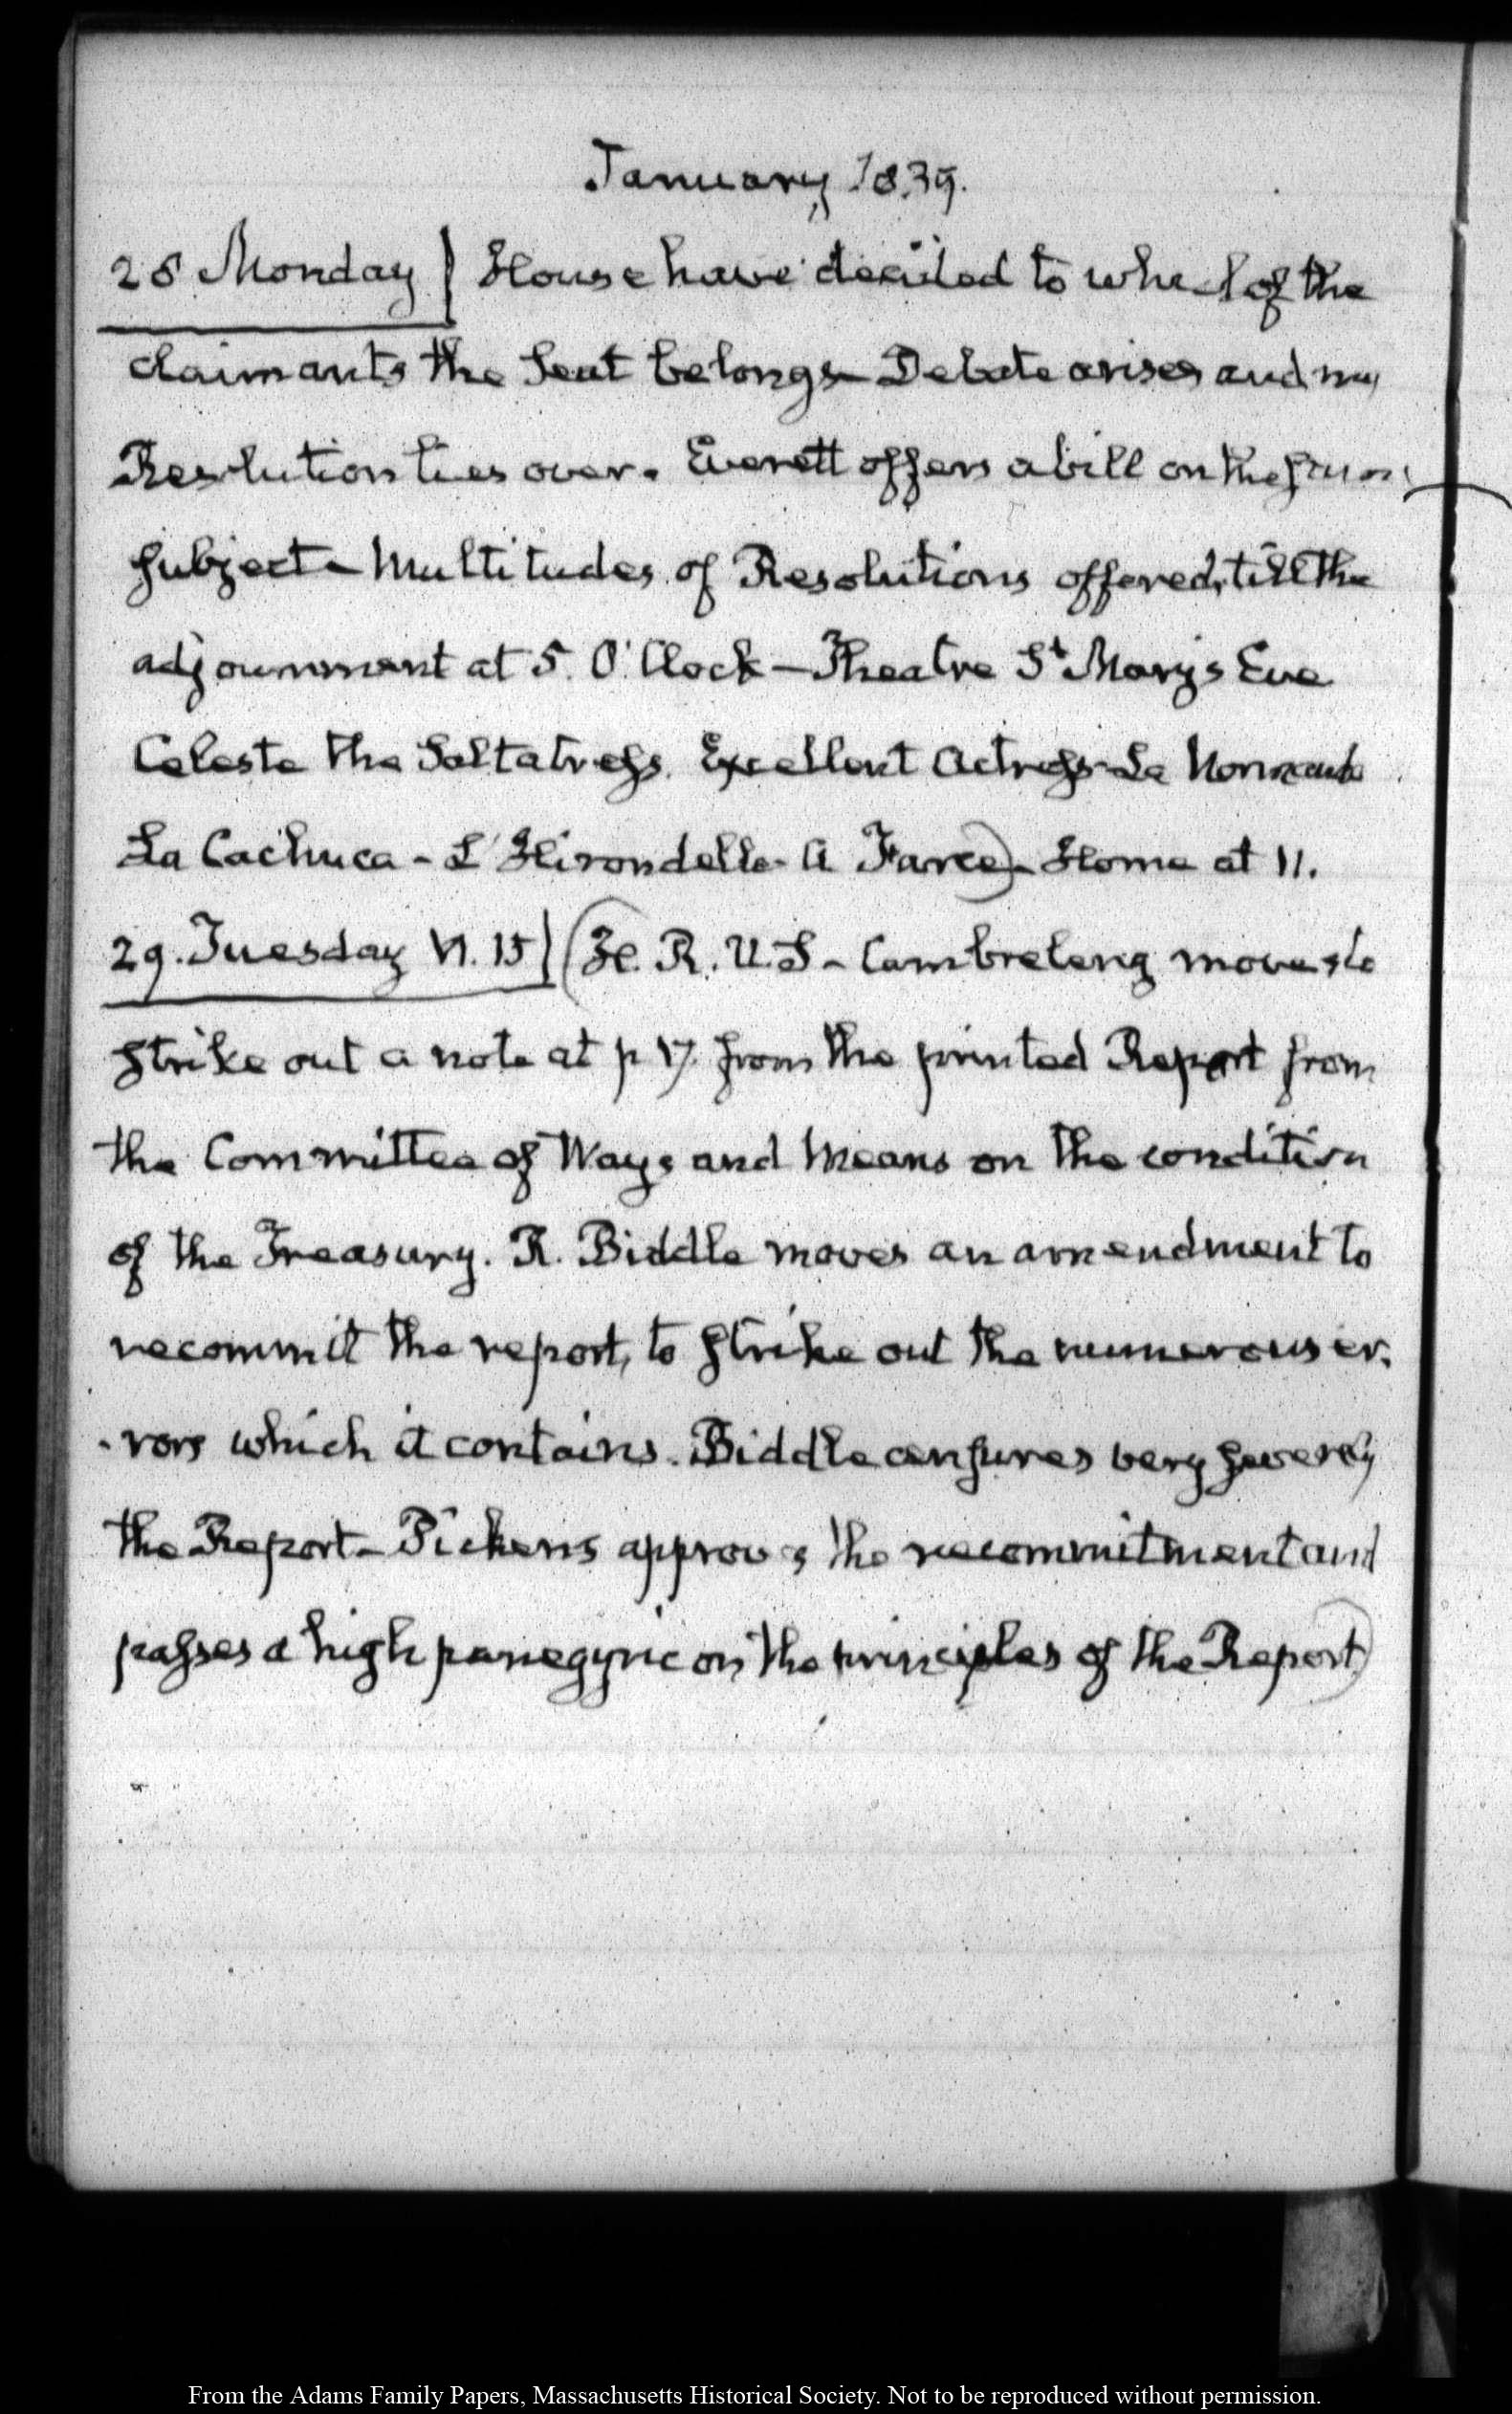 January 1839.
28 Monday} House have decided to which of the
claimants the Seat belongs — Debate arises and my
Resolution lies over. Everett offers a bill on the same
subject — Multitudes of Resolutions offered, till the
adjournment at 5. O'Clock — Theatre St Mary's Eve
Celeste the Saltatress. Excellent Actress — La Normande
La Cachuca - L'Hirondelle - A Farce) - Home at 11.
29. Tuesday VI. 15} (H. R. U. S - Cambreleng moves to
strike out a note at p 17. from the printed Report from
the Committee of Ways and Means on the condition
of the Treasury. R. Biddle moves an amendment to
recommit the report, to strike out the numerous er-
-rors which it contains. Biddle censures very severely
the Report - Pickens approves the recommitment and
passes a high panegyric on the principles of the Report)
From the Adams Family Papers, Massachusetts Historical Society. Not to be reproduced without permission.